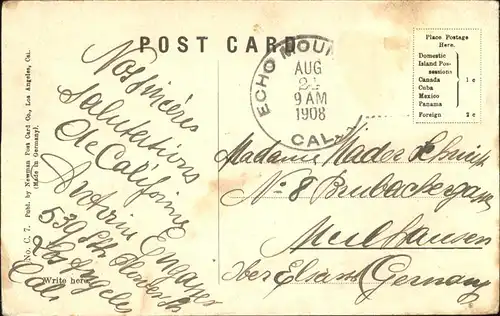 POST CARD
Place Postage
Here.
Domestic
Island Pos-
sessions
Canada
Cuba
Mexico
Panama
1 c
Foreign 2 c
ECHO MOUN
AUG
21
9 AM
1908
CAL.
No. C. 7. Publ. by Newman Post Card Co., Los Angeles, Cal.
(Made in Germany).
Write here.
Nos sincères
salutations
de Californie
539 So
Los Angeles
Cal.
Madame Mader
No 8
Mulhausen
Ober Elsass Germany